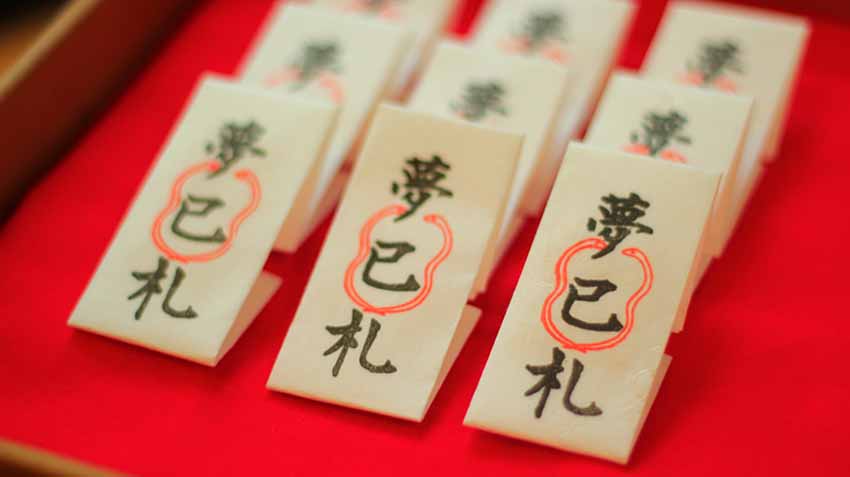 夢
夢
夢
夢
夢
夢巳札
夢巳札
夢巳札